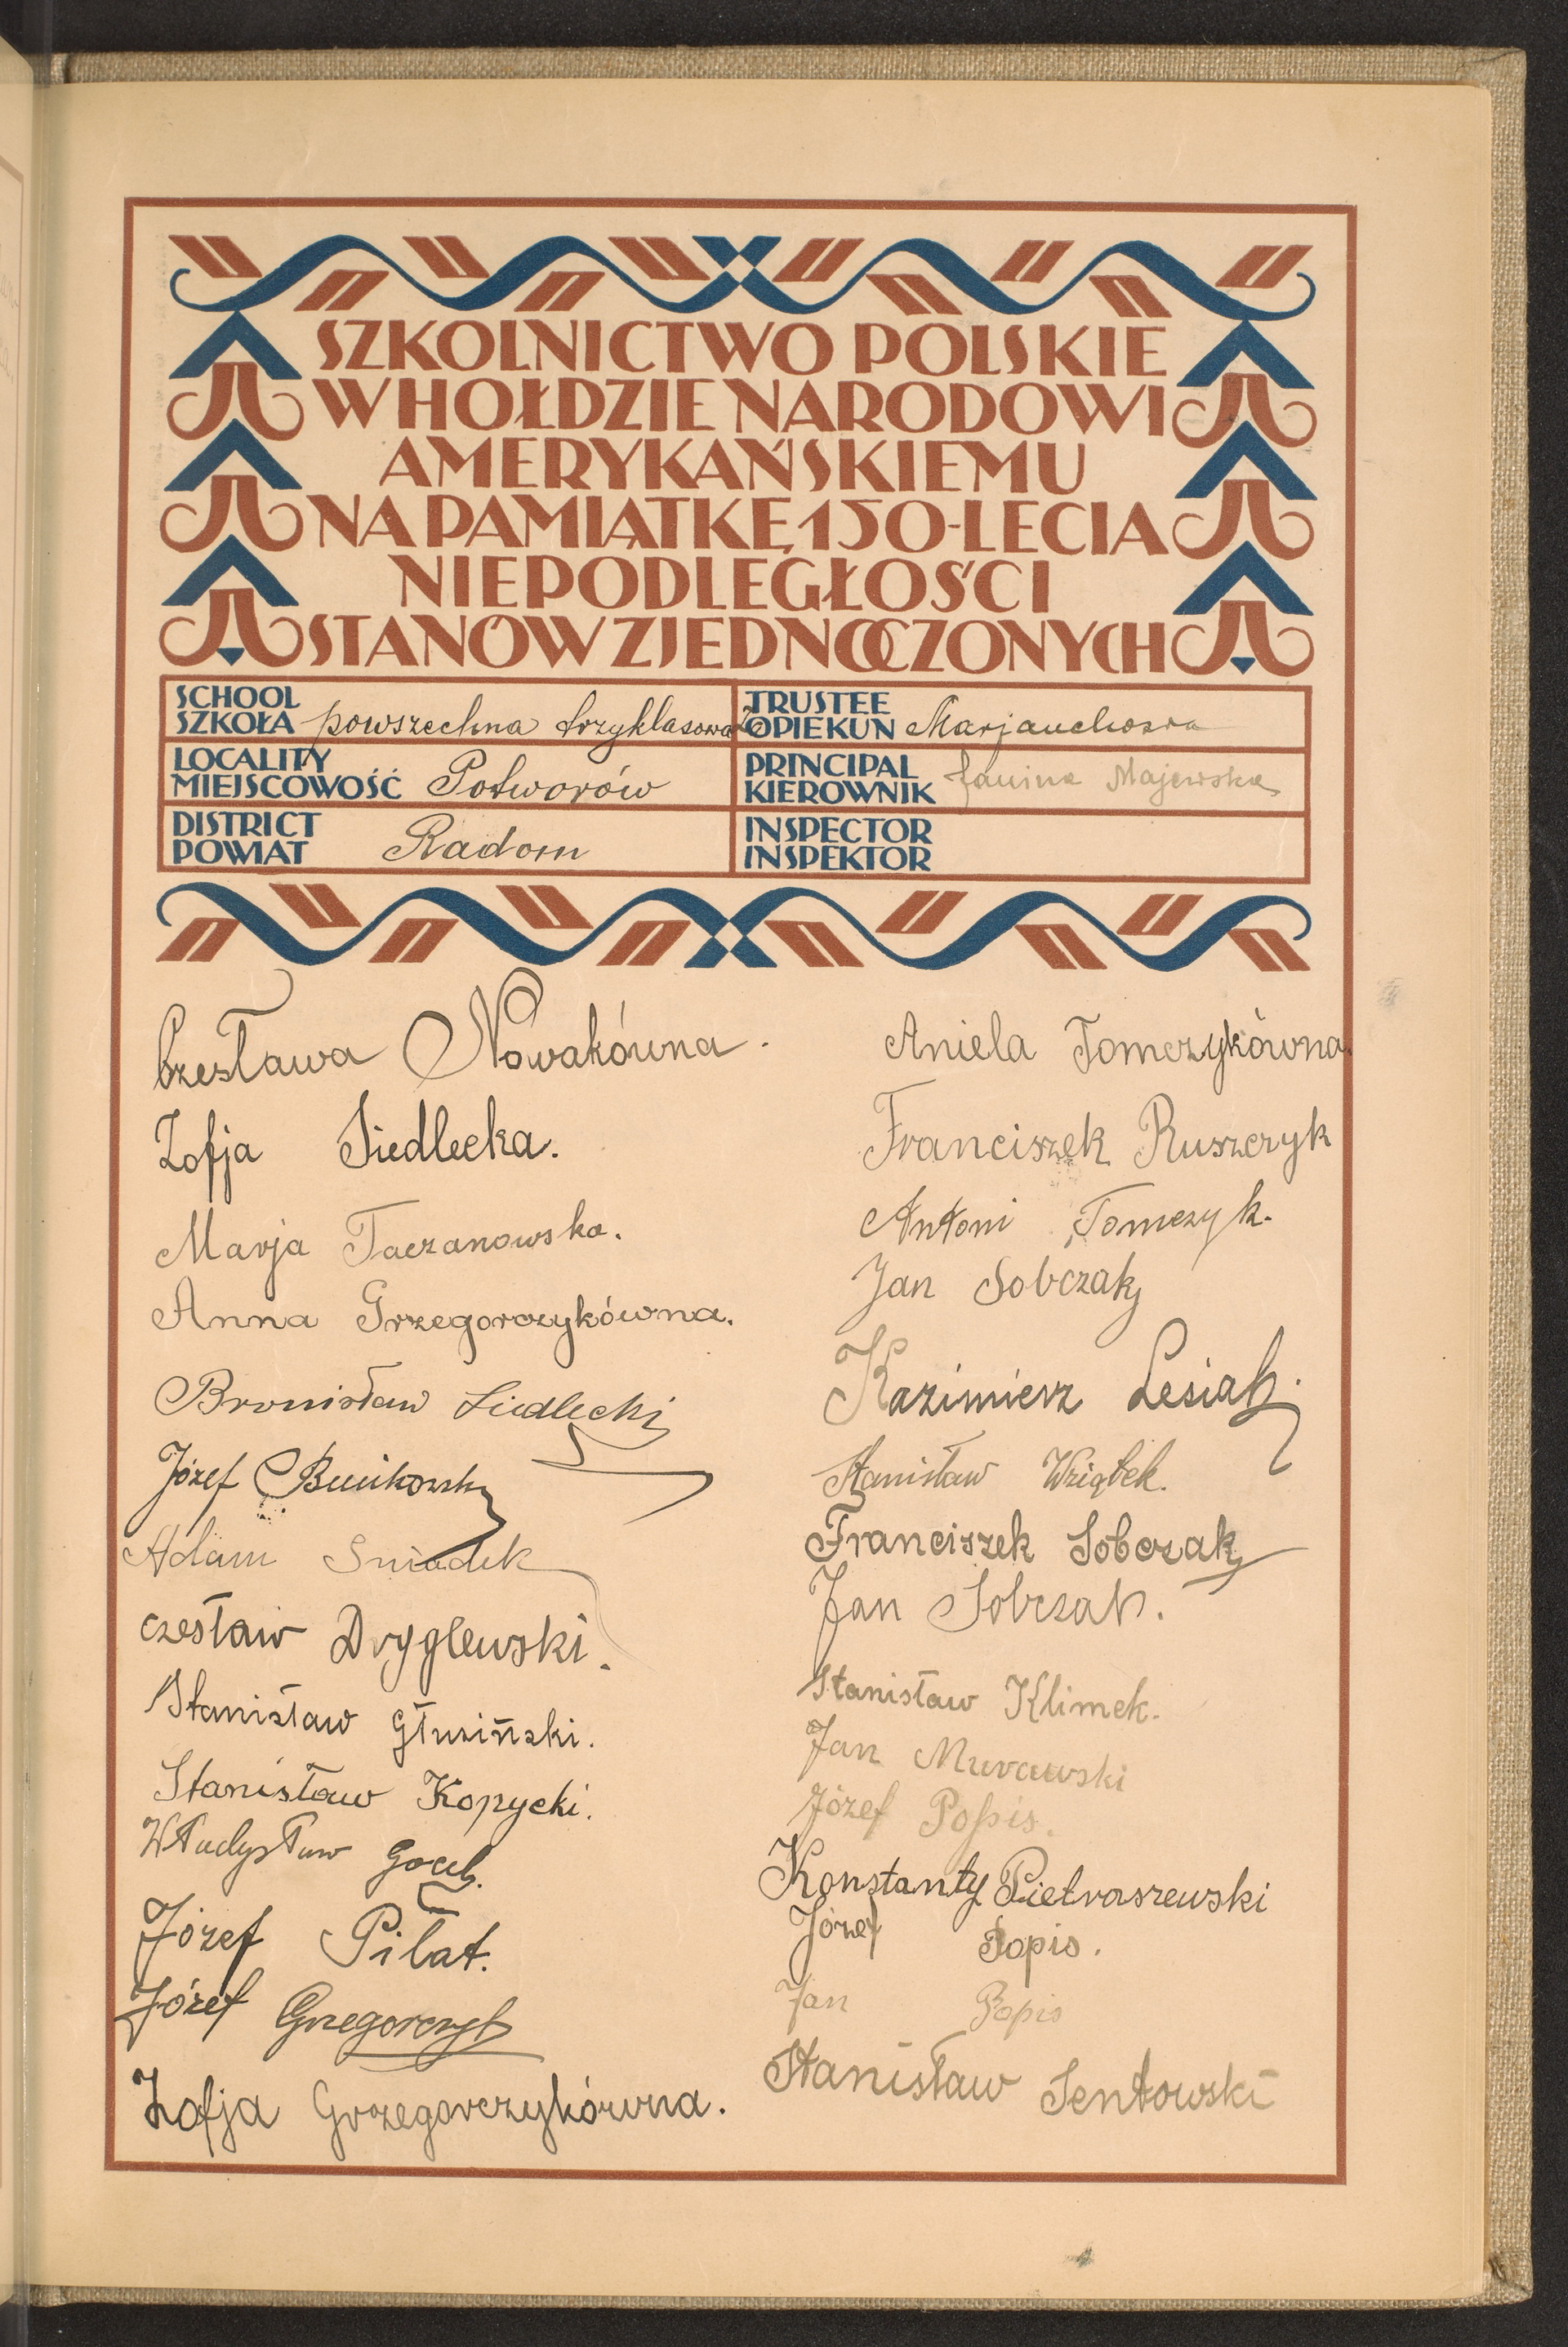 SZKOLNICTWO POLSKIE
W HOŁDZIE NARODOWI
AMERYKAŃSKIEMU
NA PAMIĄTKĘ 150-LECIA
NIEPODLEGŁOŚCI
STANÓW ZJEDNOCZONYCH
SCHOOL
SZKOŁA powszechna trzyklasowa
TRUSTEE
OPIEKUN
LOCALITY
MIEJSCOWOŚĆ Potworów
PRINCIPAL
KIEROWNIK Janina Majewska
DISTRICT
POWIAT Radom
INSPECTOR
INSPEKTOR
Czesława Nowakówna.
Zofja Siedlecka.
Marja Taczanowska.
Anna Grzegorczykówna.
Bronisław Siedlecki
Józef
Adam Śniadek
czesław Dryglewski.
Stanisław Głusiński.
Stanisław Kopycki.
Władysław
Józef Piłat.
Józef Grzegorczyk
Zofja Grzegorczykówna.
Aniela Tomczykówna.
Franciszek Ruszczyk
Antoni Tomczyk.
Jan Sobczak
Kazimierz Lesiak.
Stanisław Wziątek.
Franciszek Sobczak
Jan Sobczak.
Stanisław Klimek.
Jan Murawski
Józef Popis.
Konstanty Pietraszewski
Józef Popis.
Jan Popis
Stanisław Sentowski